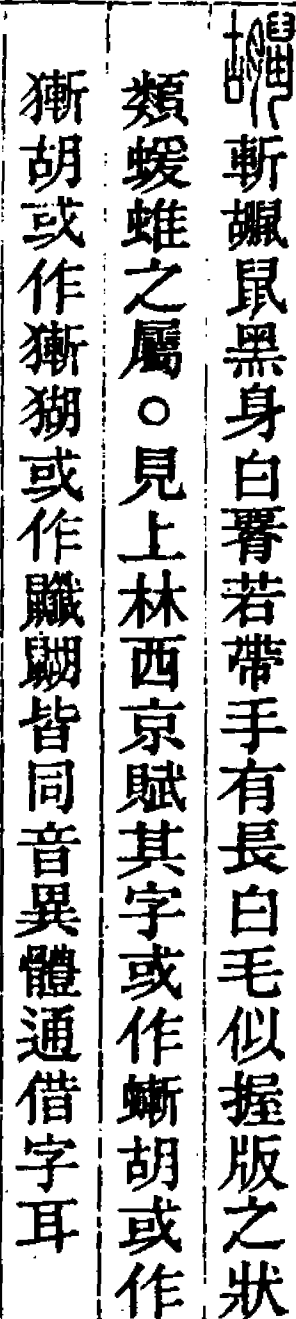 𪕮斬𪕮鼠黑身白𦝫若帶手有長白毛似握版之狀
類蝯蜼之屬○見上林西京賦其字或作螹胡或作
獑胡或作獑猢或作皆同音異體通借字耳